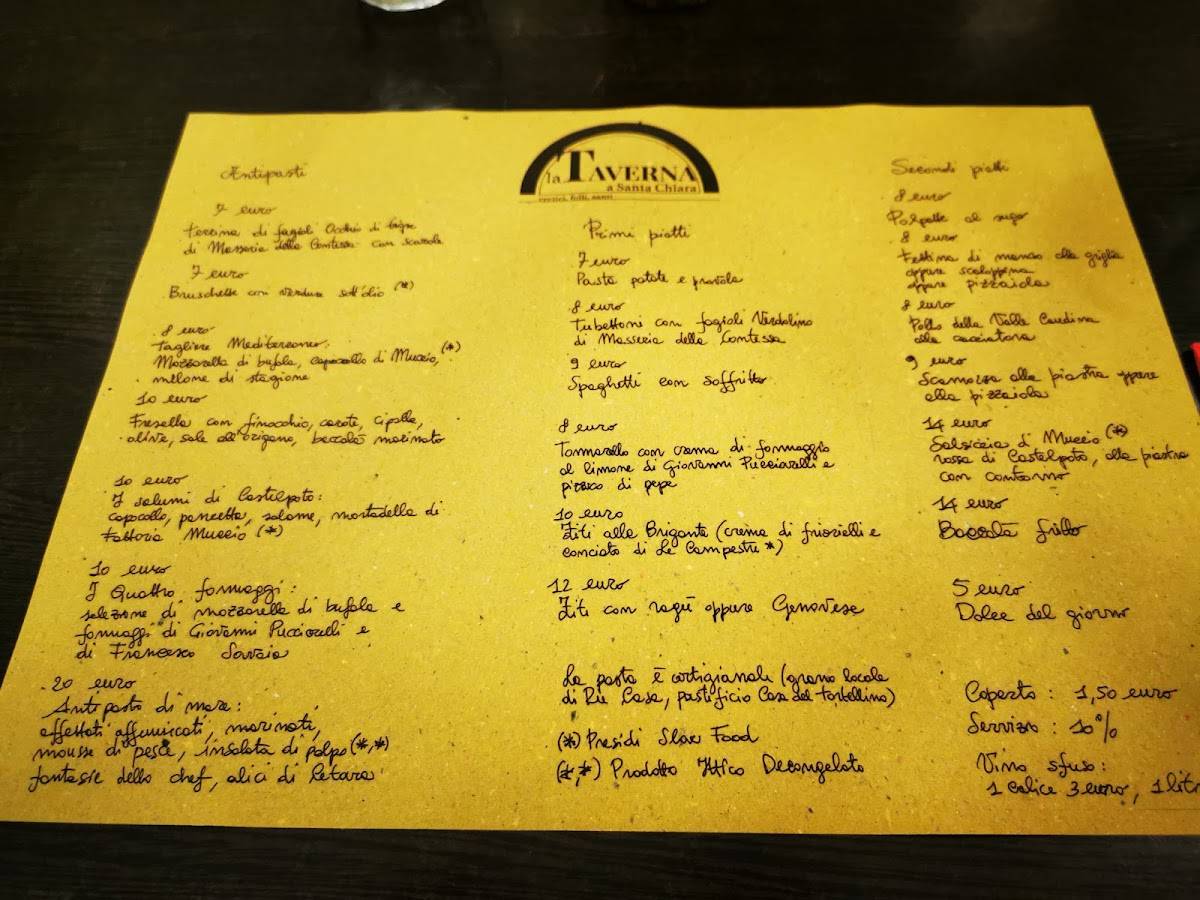 la TAVERNA
a Santa Chiara
eretici, folli, santi
Antipasti
7 euro
Terrina di fagioli Occhio di tigre
di Masseria della Contessa con scarola
7 euro
Bruschette con verdure sott'olio (*)
8 euro
Tagliere Mediterraneo:
Mozzarella di bufala, capocollo di Muccio, (*)
melone di stagione
10 euro
Fresella con finocchio, carote, cipolla,
olive, sale all'origano, baccalà marinato
10 euro
I salumi di Castelpoto:
capocollo, pancetta, salame, mortadella di
Fattoria Muccio (*)
10 euro
I Quattro formaggi:
selezione di mozzarella di bufala e
formaggi di Giovanni Pucciarelli e
di Francesco Savoia
20 euro
Antipasto di mare:
effettati affumicati, marinati,
mousse di pesce, insalata di polpo (*,*)
fantasie dello chef, alici di Cetara
Primi piatti
7 euro
Pasta patate e provola
8 euro
Tubettoni con fagioli Verdolino
di Masseria della Contessa
9 euro
Spaghetti con soffritto
8 euro
Tonnarello con crema di formaggio
al limone di Giovanni Pucciarelli e
pizzico di pepe
10 euro
Ziti alla Brigante (crema di friarielli e
conciato di Le Campestre *)
12 euro
Ziti con ragù oppure Genovese
La pasta è artigianale (grano locale
di Rù Casa, pastificio Casa del tortellino)
(*) Presidi Slow Food
(*,*) Prodotto Ittico Decongelato
Secondi piatti
8 euro
Polpette al sugo
8 euro
Fettina di manzo alla griglia
oppure scaloppina
oppure pizzaiola
8 euro
Pollo della Valle Caudina
alla cacciatora
9 euro
Scamorza alla piastra oppure
alla pizzaiola
14 euro
Salsiccia di Muccio (*)
rossa di Castelpoto, alla piastra
con contorno
14 euro
Baccalà fritto
5 euro
Dolce del giorno
Coperto : 1,50 euro
Servizio : 10%
Vino sfuso :
1 calice 3 euro, 1 litr